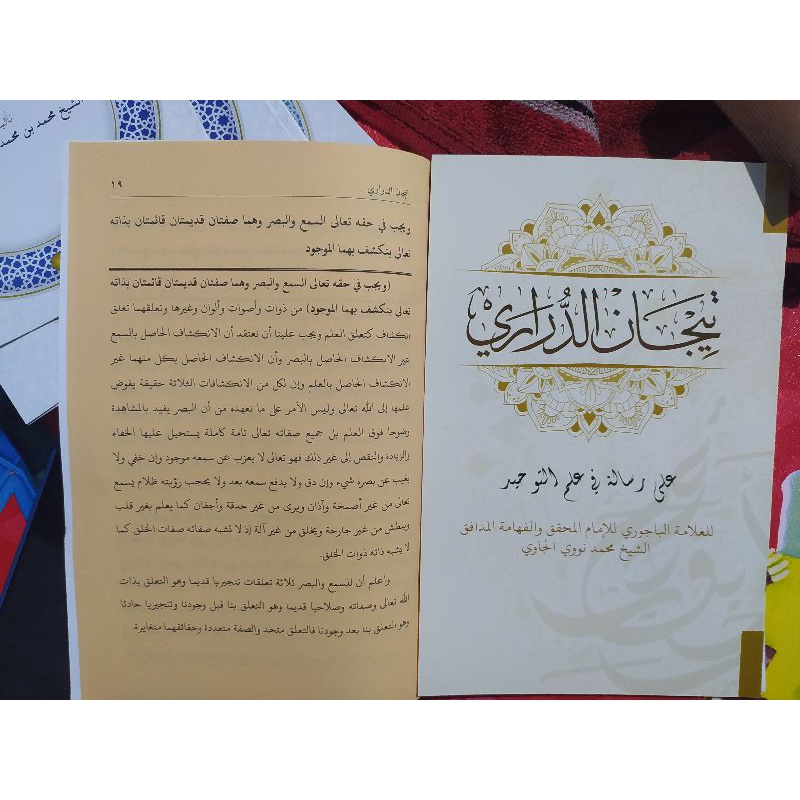 الشيخ محمد بن محمد
تيجان الدراري
١٩
ويجب في حقه تعالى السمع والبصر وهما صفتان قديمتان قائمتان بذاته
تعالى ينكشف بهما الموجود
(ويجب في حقه تعالى السمع والبصر وهما صفتان قديمتان قائمتان بذاته
تعالى ينكشف بهما الموجود) من ذوات وأصوات وألوان وغيرها وتعلقهما تعلق
انكشاف كتعلق العلم ويجب علينا أن نعتقد أن الانكشاف الحاصل بالسمع
غير الانكشاف الحاصل بالبصر وأن الانكشاف الحاصل بكل منهما غير
الانكشاف الحاصل بالعلم وإن لكل من الانكشافات الثلاثة حقيقة يفوض
علمها إلى الله تعالى وليس الأمر على ما نعهده من أن البصر يفيد بالمشاهدة
وضوحا فوق العلم بل جميع صفاته تعالى تامة كاملة يستحيل عليها الخفاء
والزيادة والنقص إلى غير ذلك فهو تعالى لا يعزب عن سمعه موجود وإن خفي ولا
يغيب عن بصره شيء وإن دق ولا يدفع سمعه بعد ولا يحجب رؤيته ظلام يسمع
تعالى من غير أصمخة وآذان ويرى من غير حدقة وأجفان كما يعلم بغير قلب
ويبطش من غير جارحة ويخلق من غير آلة إذ لا تشبه صفاته صفات الخلق كما
لا يشبه ذاته ذوات الخلق.
واعلم أن للسمع والبصر ثلاثة تعلقات تنجيزيا قديما وهو التعلق بذات
الله تعالى وصفاته وصلاحيا قديما وهو التعلق بنا قبل وجودنا وتنجيزيا حادثا
وهو التعلق بنا بعد وجودنا فالتعلق متحد والصفة متعددة وحقائقهما متغايرة.
تيجان الدُّراري
على رسالة في علم التوحيد
للعلامة الباجوري للإمام المحقق والفهامة المدافق
الشيخ محمد نووي الجاوي